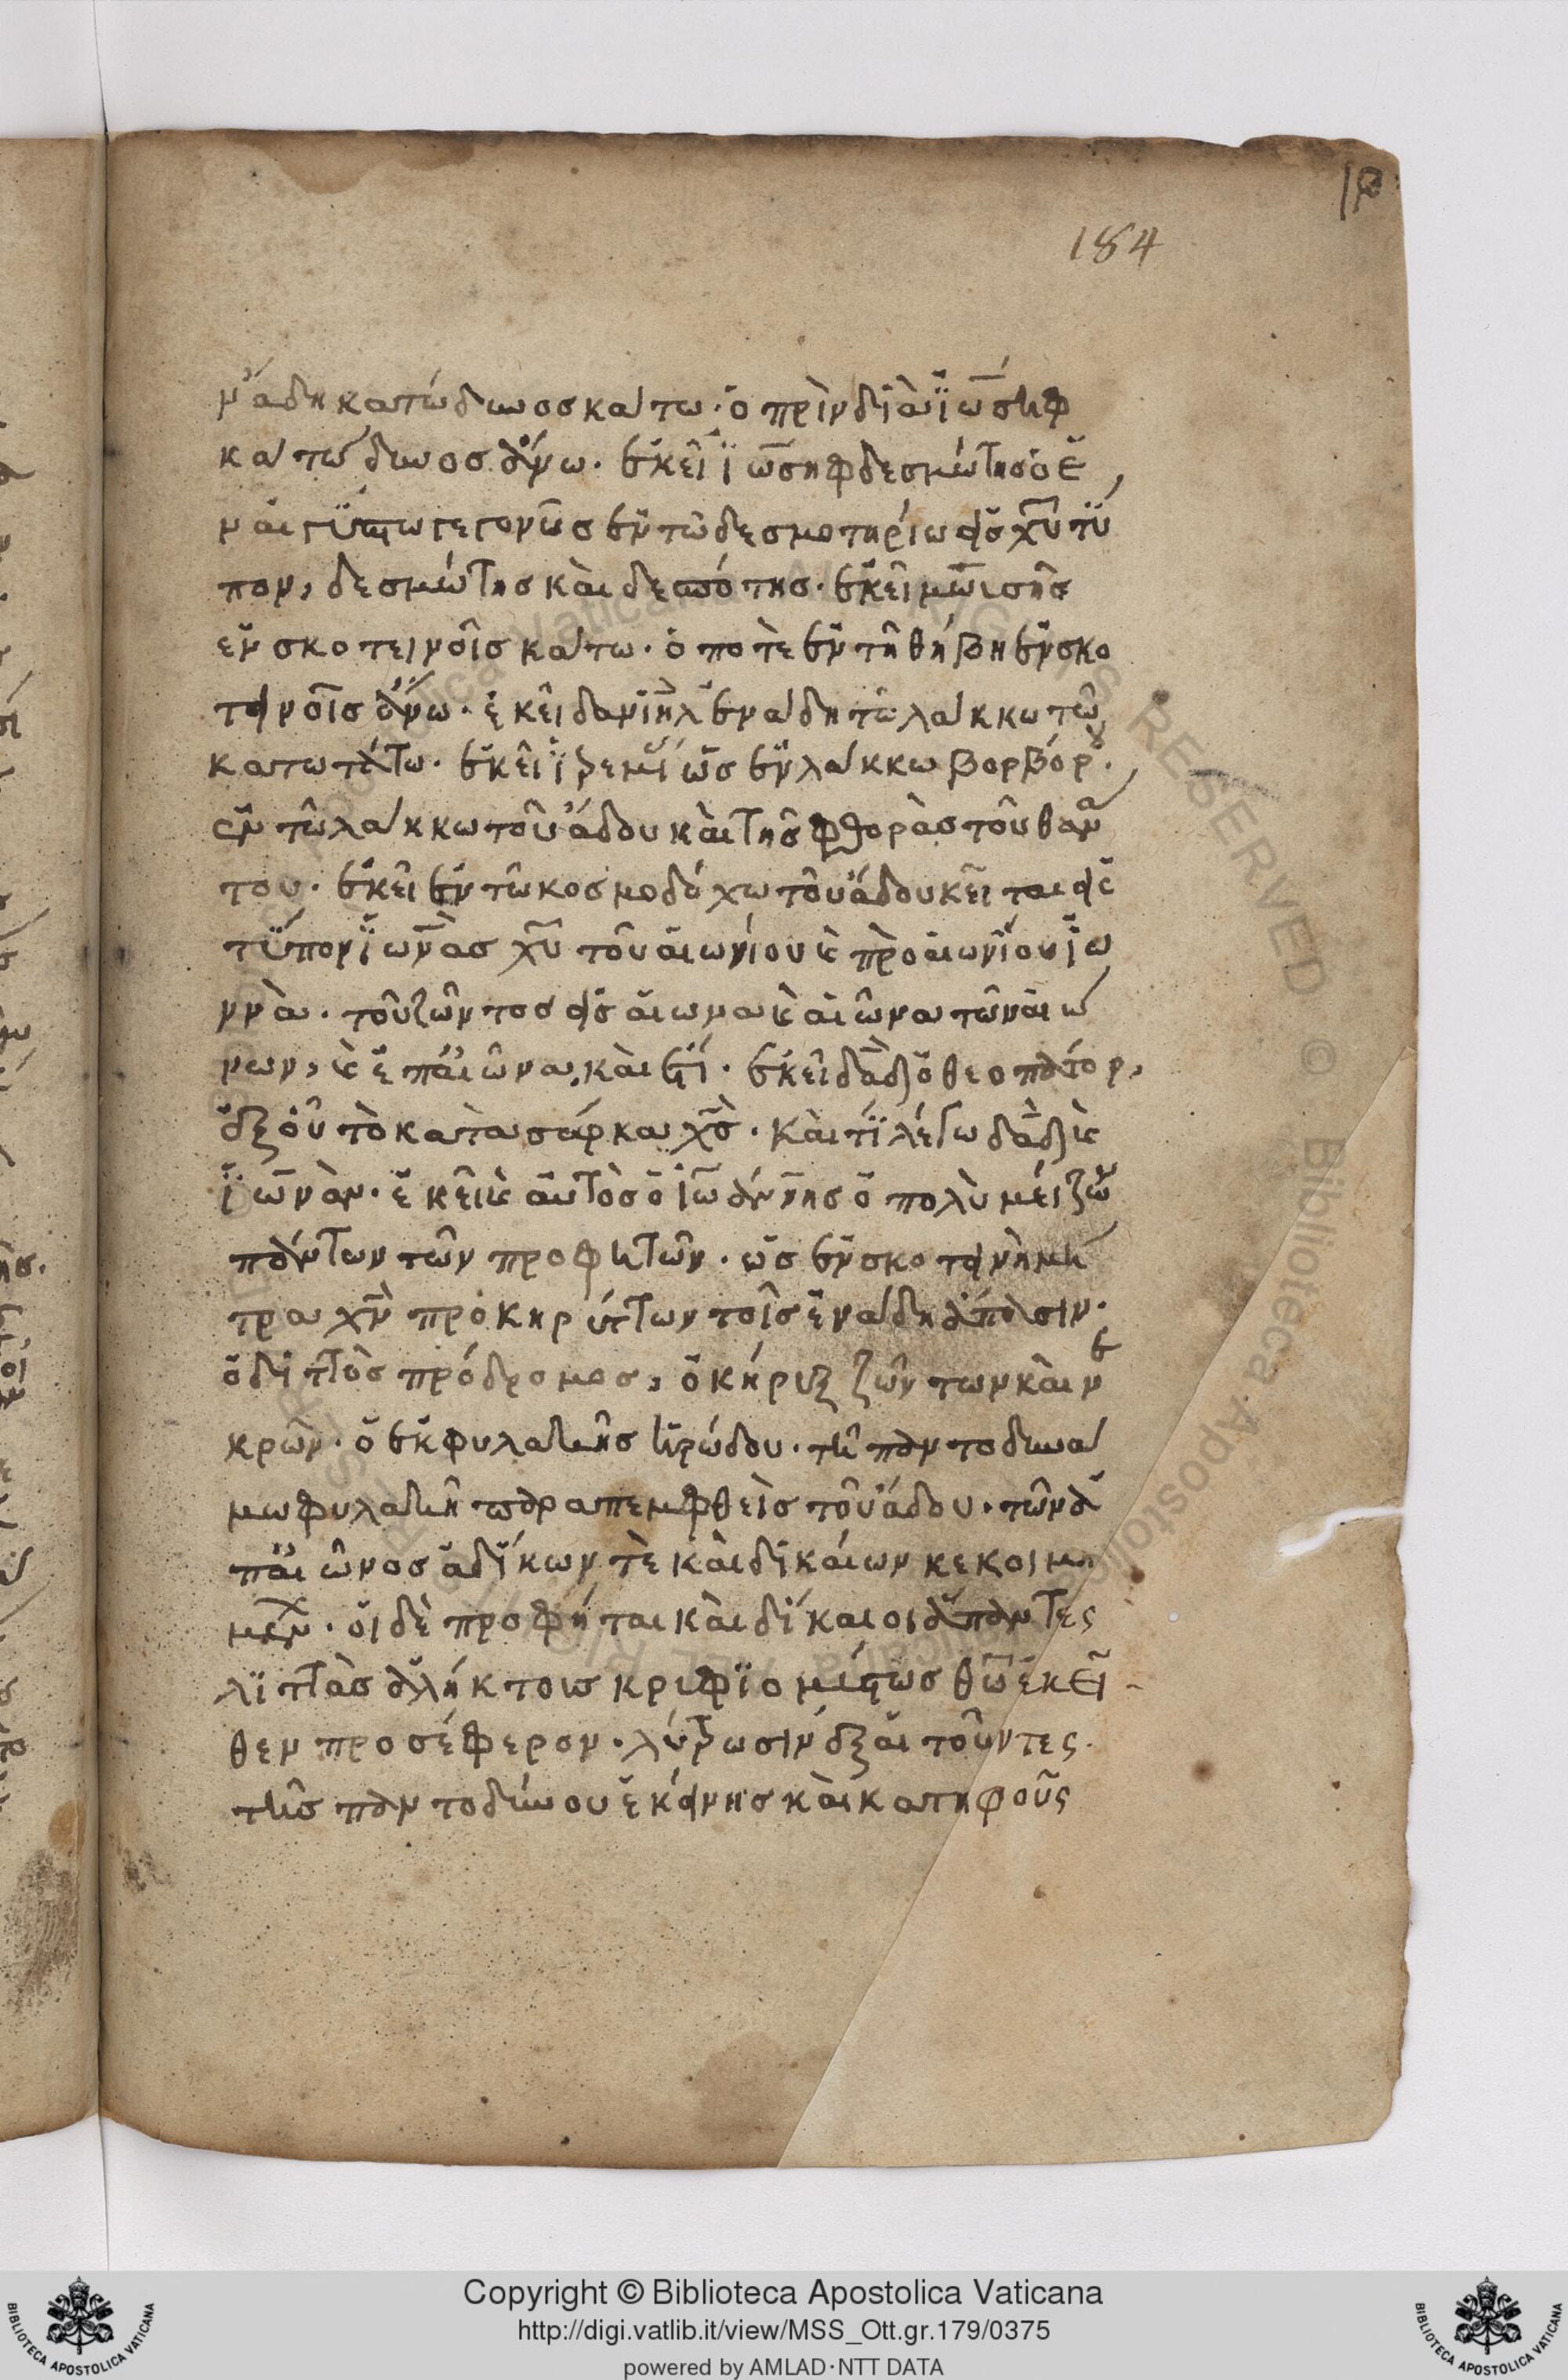 184
ν ἄδη κατώδυνος κάτω· ὁ πρὶν διὰ ἰωσὴφ
κατώδυνος ἄνω. ἐκεῖ ἰωσὴφ δεσμώτης ὁ ἐ
ν αἰγύπτω γεγονὼς ἐν τῶ δεσμοτηρίω εἰς χυ τύ
πον, δεσμώτης καὶ δεσπότης. ἐκεῖ μωϊσῆς
εν σκοτεινοῖς κάτω· ὁ ποτὲ ἐν τῆ θήβη ἐν σκο
τεινοῖς ἄνω· ἐκεῖ δανιὴλ ἐν ἄδη τῶ λάκκω τῶ
κατωτάτω. ἐκεῖ ἰερεμίας ὡς ἐν λάκκω βορβόρου.
ἐν τῶ λάκκω τοῦ ἄδου καὶ τῆς φθορᾶς τοῦ θανά
του. ἐκεῖ ἐν τῶ κοσμοδόχω τοῦ ἄδου κεῖται εἰς
τύπον ἰωνᾶς χυ τοῦ αἰωνίου κὲ προαιωνίου ἰω
ννὰ. τοῦ ζῶντος εἰς αἰωνα κὲ αἰῶνα τῶν αἰώ
νων, κὲ ἐπ αἰῶνα, καὶ ἔτι. ἐκεῖ δαδ ὁ θεοπάτορ,
ἐξ οὗ τὸ κατα σάρκα χς. καὶ τί λέγω δαδ κὲ
ἰωνὰν. ἐκεῖ κὲ αὐτὸς ὁ ἰωάννης ὁ πολὺ μείζων
πάντων τῶν προφητῶν. ὡς ἐν σκοτεινῆ μή
τρα χν προκηρύττων τοῖς ἐν ἄδη ἅπασιν.
ὁ διττὸς πρόδρομος, ὁ κήρυξ ζώντων καὶ νε
κρῶν. ὁ ἐκ φυλακῆς ἡρώδου. τῆ παντοδυνά
μω φυλακῆ παραπεμφθεὶς τοῦ ἄδου. τῶν ἀ
π αἰῶνος ἀδίκων τὲ καὶ δικαίων κεκοιμη
μένων. οἱ δὲ προφήται καὶ δίκαιοι ἅπαντες
λιτὰς ἀλήκτοις κριφιομύστως θω ἐκεῖ
θεν προσέφερον. λύτρωσιν ἐξαιτοῦντες.
τῆς παντοδύνου ἐκείνης καὶ κατηφοῦς
Copyright © Biblioteca Apostolica Vaticana
http://digi.vatlib.it/view/MSS_Ott.gr.179/0375
powered by AMLAD·NTT DATA
BIBLIOTECA APOSTOLICA VATICANA
BIBLIOTECA APOSTOLICA VATICANA